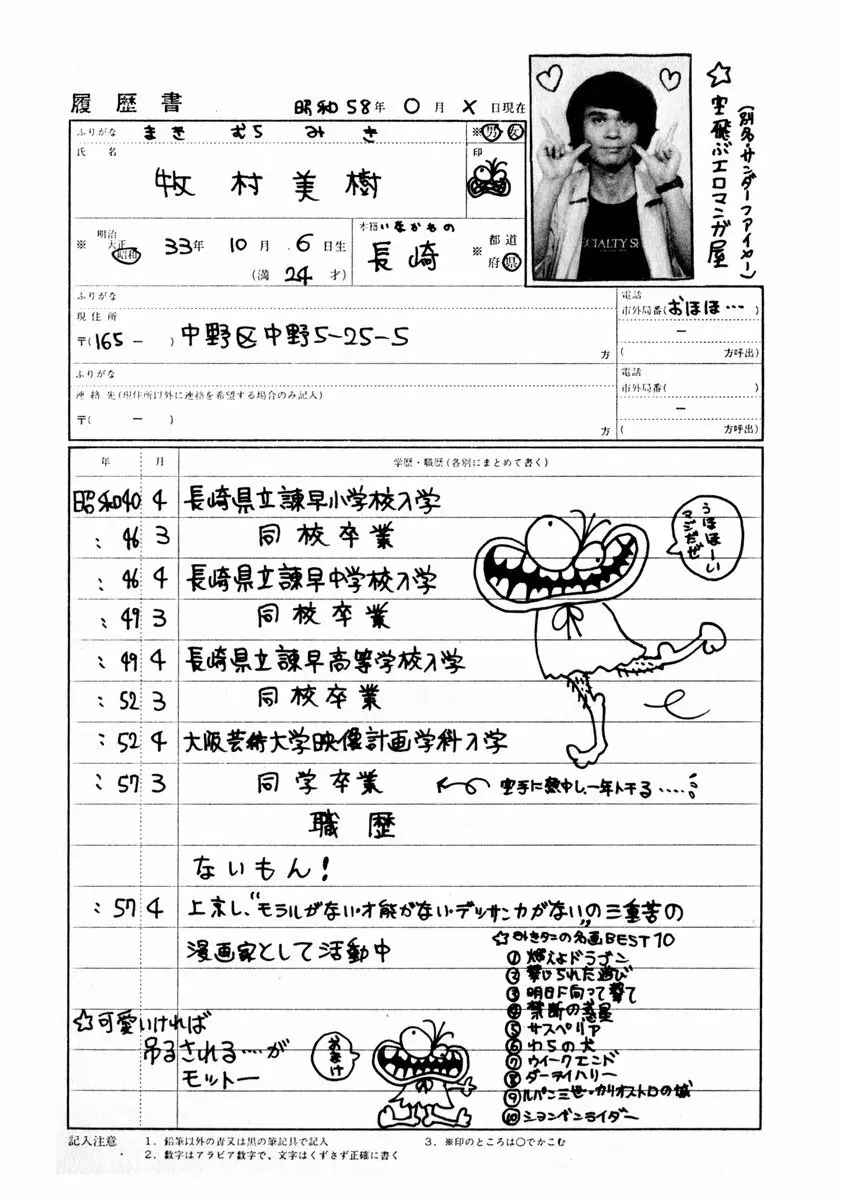 履歴書
昭和58年 〇月 ×日現在
ふりがな まき むら みき
※男・女
氏名 牧村美樹
印
※ 明治 大正 昭和 33年 10月 6日生
(満 24 才)
本籍 いなかもの
長崎
※ 都道府県
☆空飛ぶエロマンガ屋
(別名・サンダーファイヤー)
CIALTY S
ふりがな
現住所
〒(165 - ) 中野区中野5-25-5
方
電話
市外局番(おほほ…)
-
( 方呼出)
ふりがな
連絡先(現住所以外に連絡を希望する場合のみ記入)
〒( - )
方
電話
市外局番( )
-
( 方呼出)
年 月 学歴・職歴(各別にまとめて書く)
昭和40 4 長崎県立諫早小学校入学
〃 46 3 同校卒業
〃 46 4 長崎県立諫早中学校入学
〃 49 3 同校卒業
〃 49 4 長崎県立諫早高等学校入学
〃 52 3 同校卒業
〃 52 4 大阪芸術大学映像計画学科入学
〃 57 3 同学卒業 ← 空手に熱中し、一年トチる……
うほほーい
マジだぜ
職歴
ないもん!
〃 57 4 上京し、"モラルがない・才能がない・デッサン力がない"の三重苦の
漫画家として活動中
☆みきタニの名画BEST10
①燃えよドラゴン
②禁じられた遊び
③明日に向って撃て
④禁断の惑星
⑤サスペリア
⑥わらの犬
⑦ウイークエンド
⑧ダーティハリー
⑨ルパン三世・カリオストロの城
⑩ションベンライダー
☆可愛いければ
吊るされる…が
モットー
おまけ
記入注意 1. 鉛筆以外の青又は黒の筆記具で記入 3. ※印のところは〇でかこむ
2. 数字はアラビア数字で、文字はくずさず正確に書く